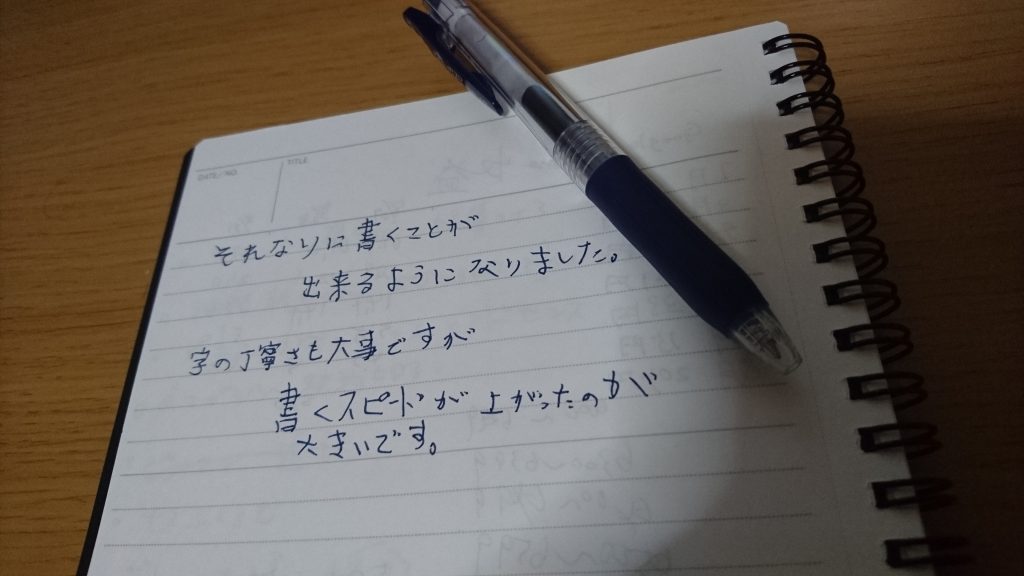 DATE／NO.
TITLE
それなりに書くことが
出来るようになりました。
字の丁寧さも大事ですが
書くスピードが上がったのが
大きいです。